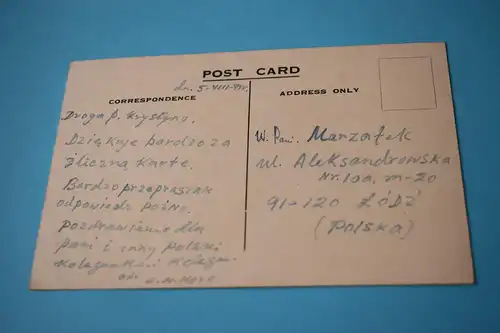 POST CARD
dn. 5-VIII-
CORRESPONDENCE
ADDRESS ONLY
Droga p. Krystyno.
Dziękuje bardzo za
śliczną karte.
Bardzo przepraszak
odpowiedz pożno.
Pozdrowienie dla
pani i inny Polski
Koleżanka i Kolega.
od.
W. Pani. Marzatek
ul. Aleksandrowska
Nr. 100, m-20
91-120 ŁÓDŹ
(Polska)